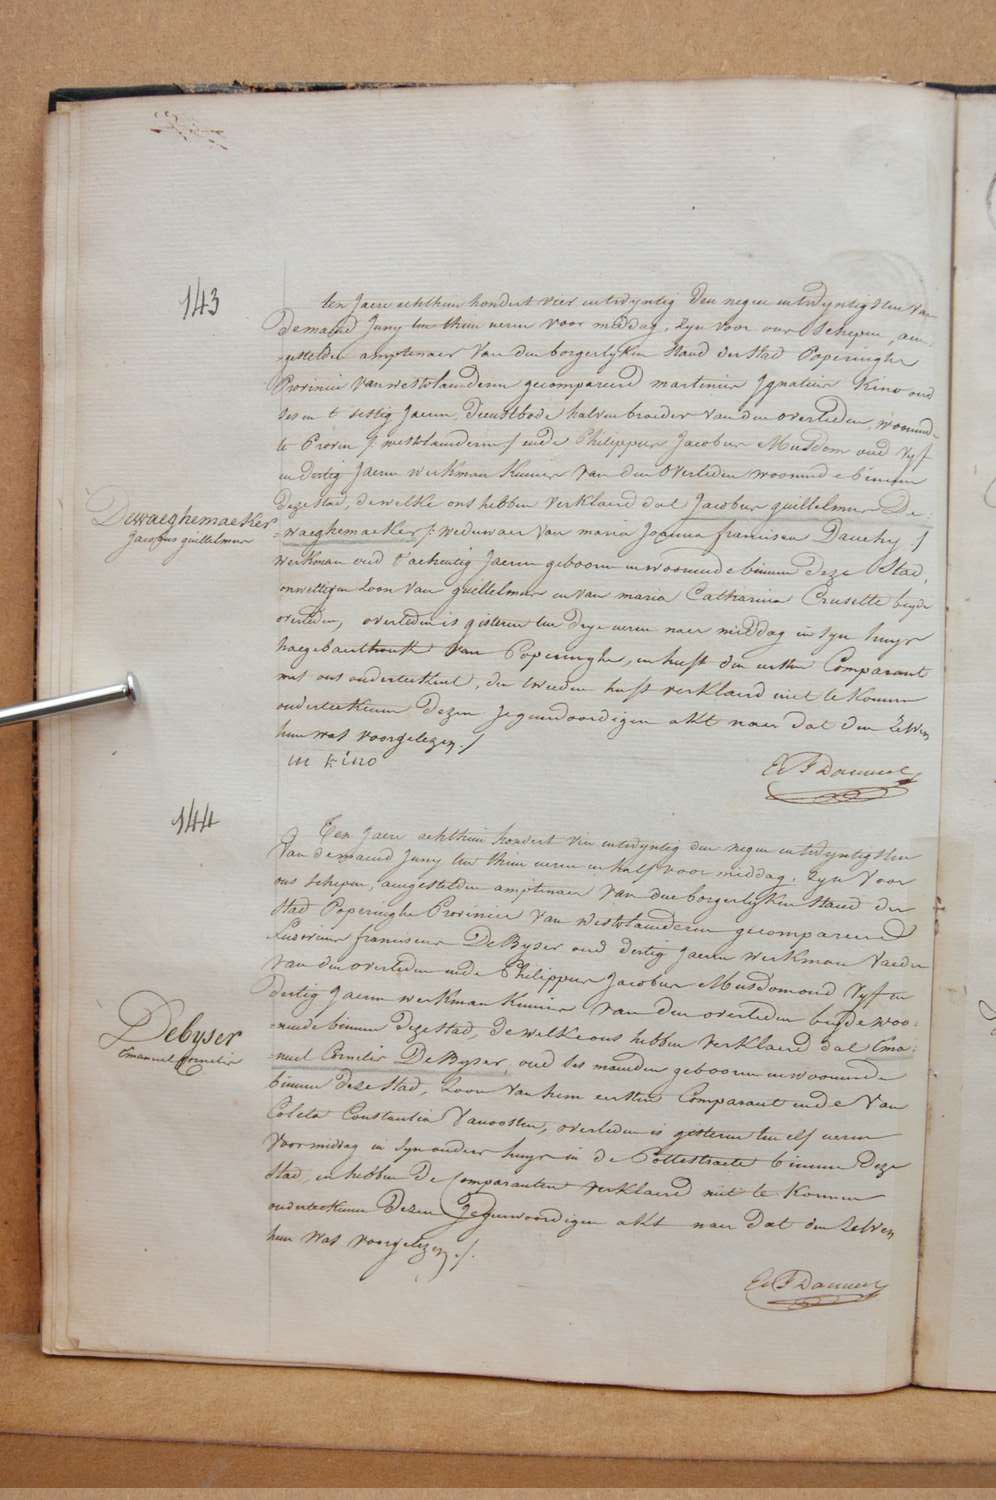 143
ten Jaere achthien hondert vier entwyntig den negen entwyntigsten van
de maend Juny ten thien ueren voor middag, zyn voor ons schepen, aen-
gestelden amptenaer van den borgerlyken stand der stad Poperinghe
Provincie van westvlaenderen gecompareerd martinus Ignatius Kino oud
ses en t sestig Jaeren, dienstbode halven broeder van den overleden, woonende
te Proven /: westvlaenderen :/ ende Philippus Jacobus Musdom oud vyf
en dertig Jaeren werkman kennis van den overleden woonende binnen
deze stad, dewelke ons hebben verklaerd dat Jacobus guillelmus De-
Dewaeghemaeker
Jacobus guillelmus
=waeghemaeker /: weduwaer van maria Joanna francisca Dauchy :/
werkman oud t'achentig Jaeren geboren en woonende binnen deze stad,
onwettigen zoon van guillelmus en van maria Catharina Crusette beyde
overleden, overleden is gisteren ten dryeueren naer middag in syn huys
van Poperinghe, en heeft den eersten Comparant
met ons onderteekent, den tweeden heeft verklaerd niet te konnen
onderteekenen dezen Jegenwoordigen akt naer dat den zelven
hun was voorgelezen ./
m kino
144
Ten Jaere achthien hondert vier entwyntig den negen entwyntigsten
van de maend Juny ten thien ueren en half voor middag, zyn voor
ons schepen, aengestelden amptenaer van den borgerlyken stand der
stad Poperinghe Provincie van westvlaenderen gecompareerd
franciscus DeByser oud dertig Jaeren werkman vader
van den overleden ende Philippus Jacobus Musdom oud vyf en
dertig Jaeren werkman kennis van den overleden beyde woo-
=nende binnen deze stad, dewelke ons hebben verklaerd dat Ema-
Debyser
Emanuel Cornelis
=nuel Cornelis DeByser, oud ses maenden geboren en woonende
binnen deze stad, zoon van hem eersten Comparant ende van
Coleta Constantia Vanoosten, overleden is gisteren ten elf ueren
voormiddag in syn ouders huys in de Pottestraete binnen deze
stad, en hebben de Comparanten verklaerd niet te konnen
onderteekenen dezen Jegenwoordigen akt naer dat den zelven
hun was voorgelezen ./.